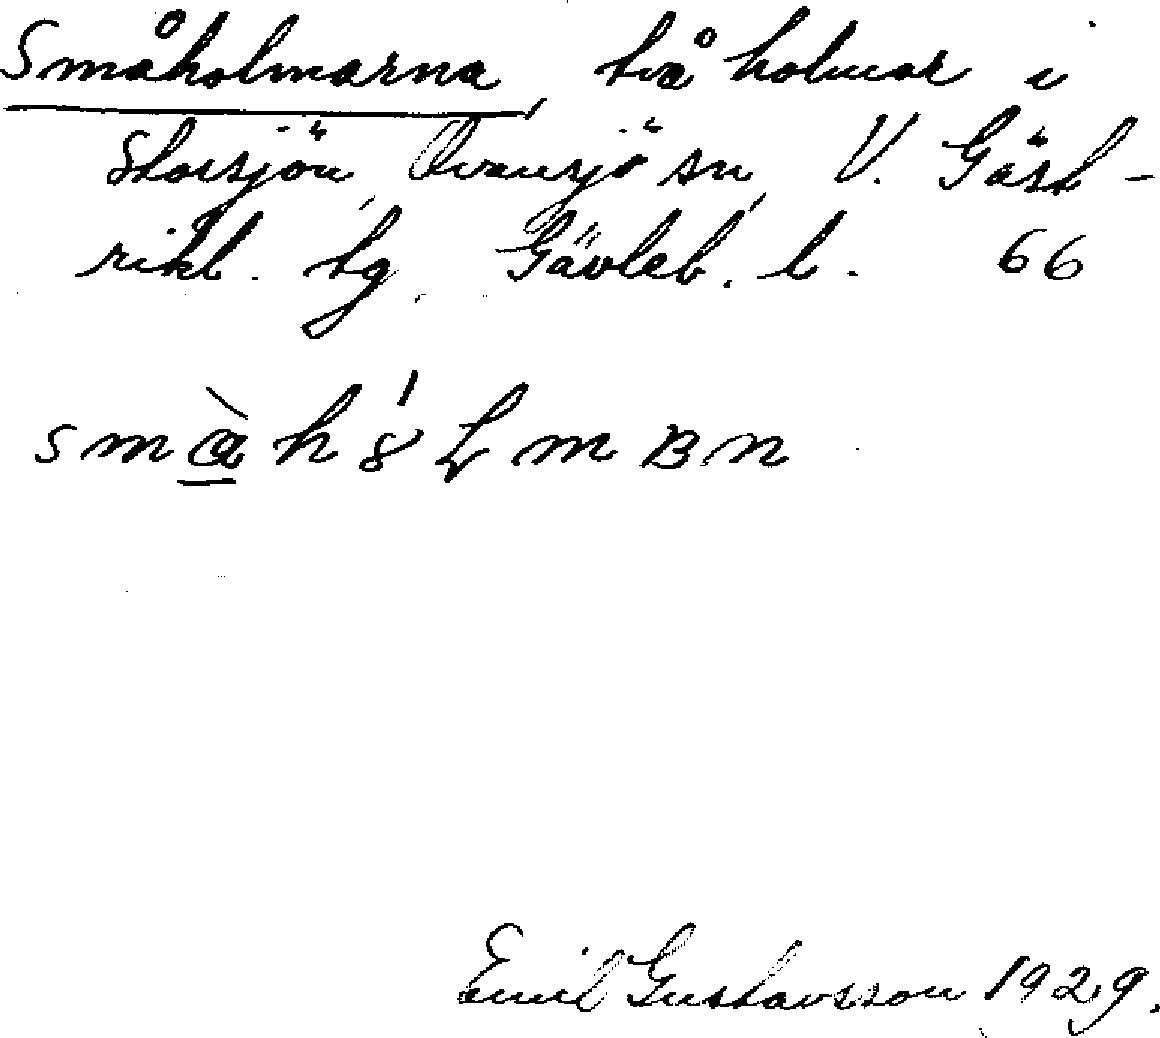 Småholmarna, två holmar i
Storsjön, Ovansjö sn, V. Gäst-
rikl. tg, Gävleb. l. 66
Emil Gustavsson 1929.